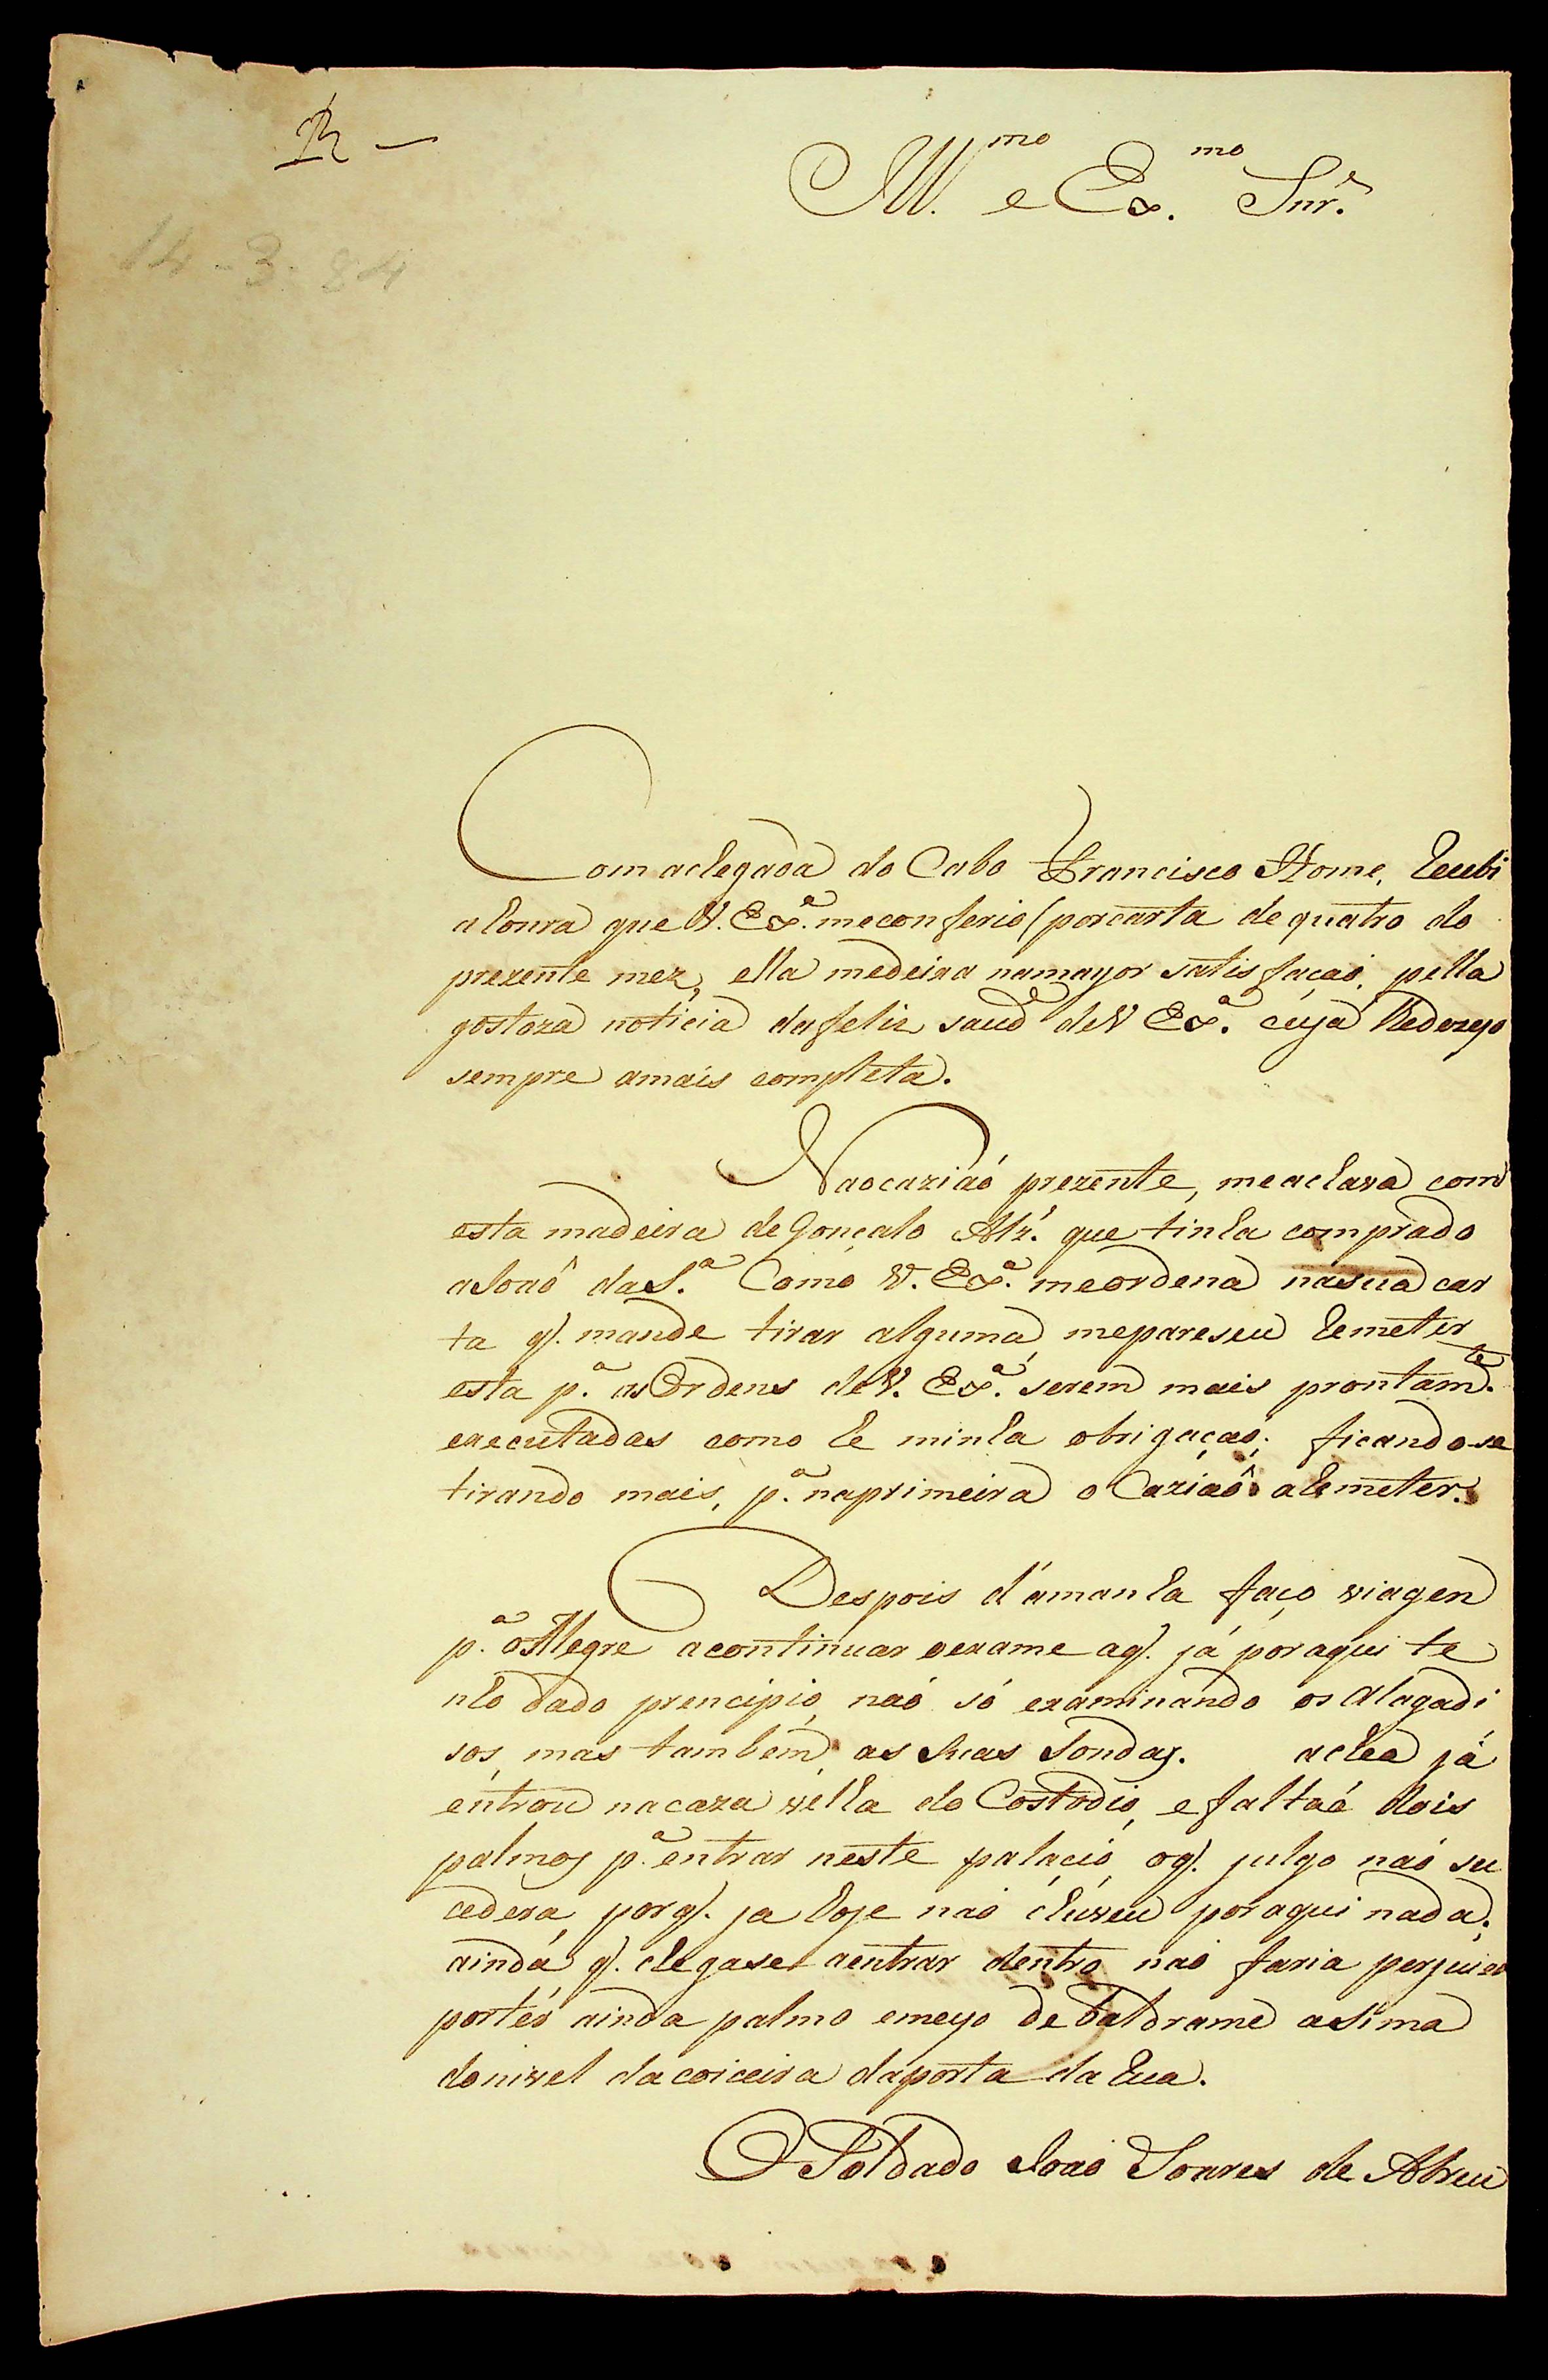 R —
Ill.mo e Ex.mo Snr.
14-3-84
Com achegada do Cabo Francisco Home, Recebi
ahonra que V. Ex.a meconferio (porcarta de quatro do
prezente mez, ella medeixa namayor satisfaçaõ, pella
gostoza noticia dafeliz saud.e deV Ex.a cuja Redezejo
sempre amais completa.
Naocaziaõ prezente, meachava com
esta madeira deGonçalo Alz'. que tinha comprado
aJoaõ daS.a Como V. Ex.a meordena nasua car
ta q'. mande tirar alguma, mepareseu Remeter
esta p.a asOrdens deV. Ex.a serem mais prontam.te
executadas como he minha obrigaçaõ; ficando-se
tirando mais, p.a naprimeira oCaziaõ aRemeter.
Despois d'amanha faço viagen
p.a oAlegre acontinuar oexame aq'. já poraqui te
nho dado prencipio, naõ só examinando os Alagadi
sos, mas tambem, as suas Sondas. achea já
entrou nacaza velha do Costodio, efaltaõ dois
palmos p.a entrar neste palacio, oq'. julgo naõ su
cederá, porq'. ja hoje naõ chuveu poraqui nada;
ainda q'. chegase aentrar dentro naõ faria perjuizo
portér ainda palmo emeyo de baldrame asima
donivel dacoiceira daporta da Rua.
O Soldado Joaõ Soares de Abreu